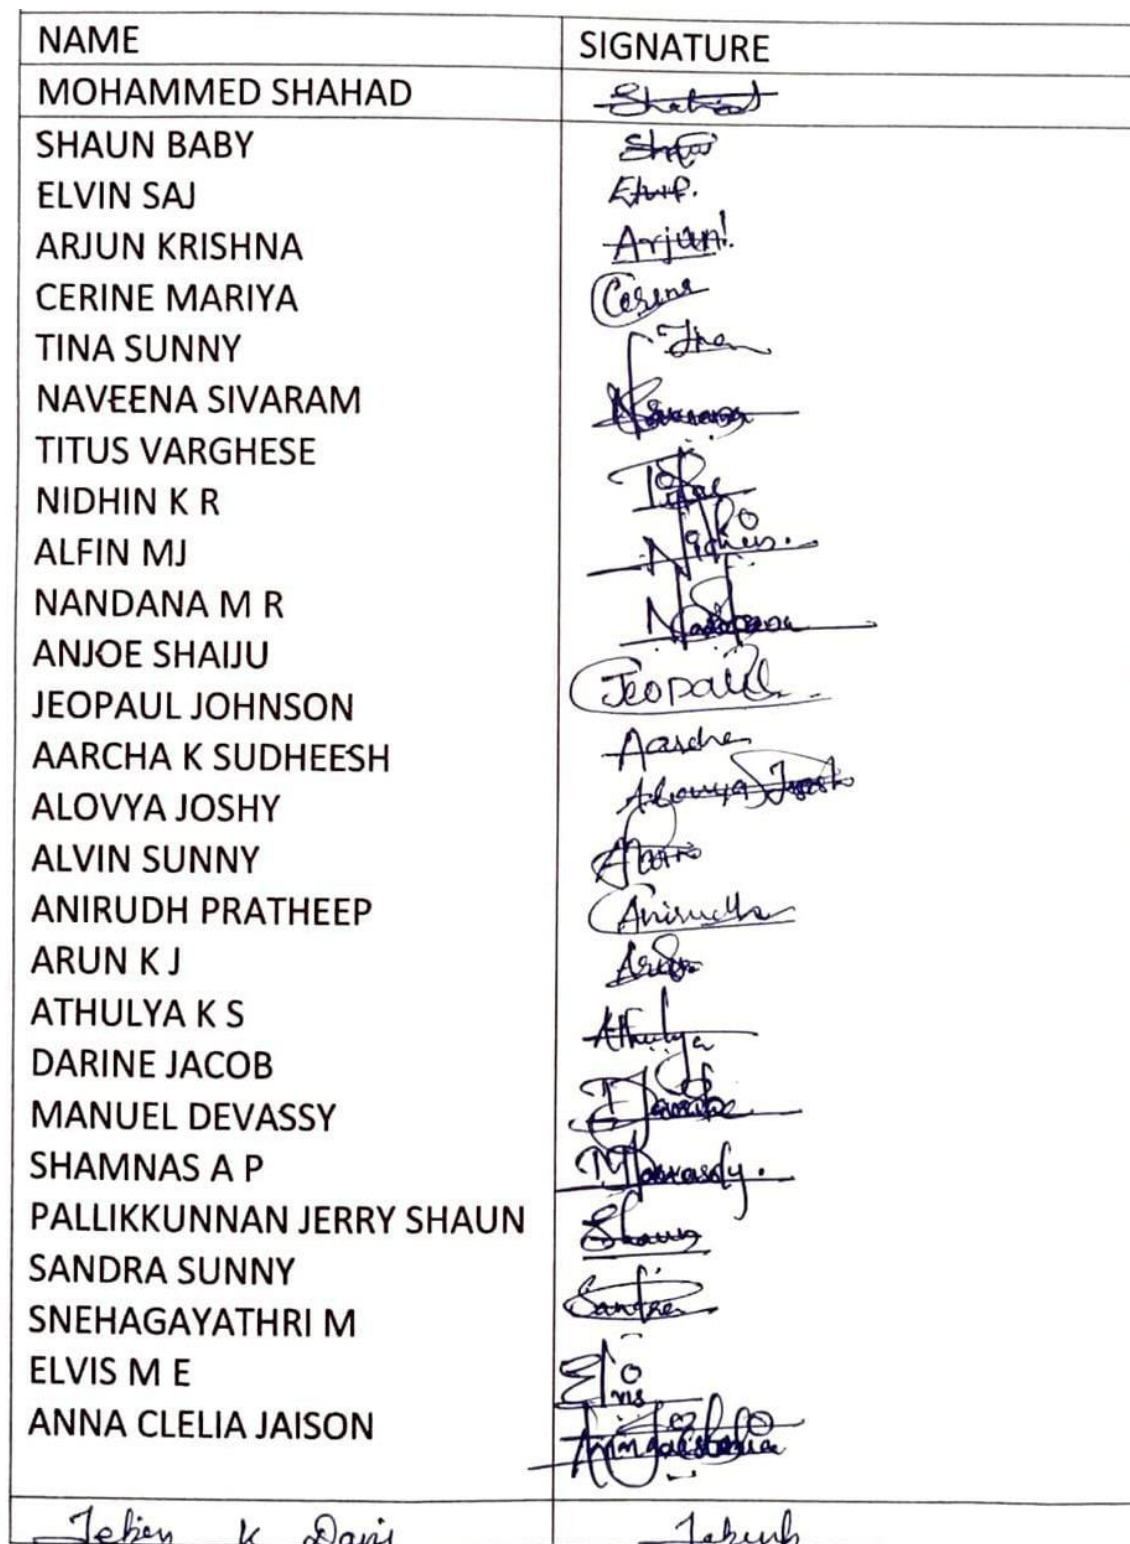 NAME SIGNATURE
MOHAMMED SHAHAD Shahad
SHAUN BABY
ELVIN SAJ
ARJUN KRISHNA Arjun
CERINE MARIYA Cerine
TINA SUNNY
NAVEENA SIVARAM
TITUS VARGHESE
NIDHIN K R
ALFIN MJ
NANDANA M R
ANJOE SHAIJU
JEOPAUL JOHNSON Jeopaul
AARCHA K SUDHEESH Aarcha
ALOVYA JOSHY Alovya
ALVIN SUNNY
ANIRUDH PRATHEEP Anirudh
ARUN K J Arun
ATHULYA K S Athulya
DARINE JACOB
MANUEL DEVASSY
SHAMNAS A P
PALLIKKUNNAN JERRY SHAUN Shaun
SANDRA SUNNY Sandra
SNEHAGAYATHRI M
ELVIS M E Elvis
ANNA CLELIA JAISON
K Davis